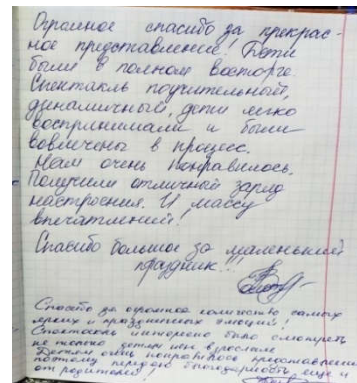 Огромное спасибо за прекрас-
ное представление! Дети
были в полном восторге.
Спектакль поучительный,
динамичный, дети легко
воспринимали и были
вовлечены в процесс.
Нам очень понравилось.
Получили отличный заряд
настроения. И массу
впечатлений!
Спасибо большое за маленький
праздник!!!
Спасибо за огромное количество самых
ярких и праздничных эмоций!
Спектакль интересно было смотреть
не только детям но и взрослым.
Детям очень понравилось представление
поэтому передаю благодарность еще и
от родителей!